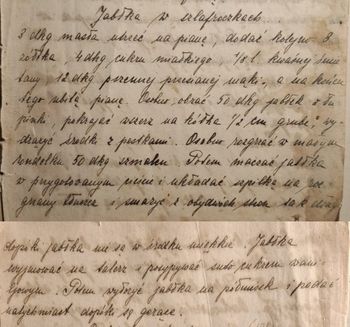 Jabłka w szlafroczkach.
3 dkg masła utrzeć na pianę, dodać kolejno 3
żółtka, 4 dkg. cukru miałkiego, 1/8 l. kwaśnej śmie
tany 12 dkg pszennej przesianej mąki, a na końcu
tego ubitą pianę. Osobno obrać 50 dkg jabłek z łu
pinki, pokrajać wszerz na kółka 1/2 cm grube, wy
drążyć środki z pestkami. Osobno rozgrzać w małym
rondelku 50 dkg szmalcu. Potem maczać jabłka
w przygotowanym cieście i układać szpilką na roz
grzany tłuszcz i smażyć z obydwóch stron tak długo
dopóki jabłka nie są w środku miękkie. Jabłka
wyjmować na talerz i posypywać suto cukrem wani
ljowym. Potem wyłożyć jabłka na półmisek i podać
natychmiast dopóki są gorące.